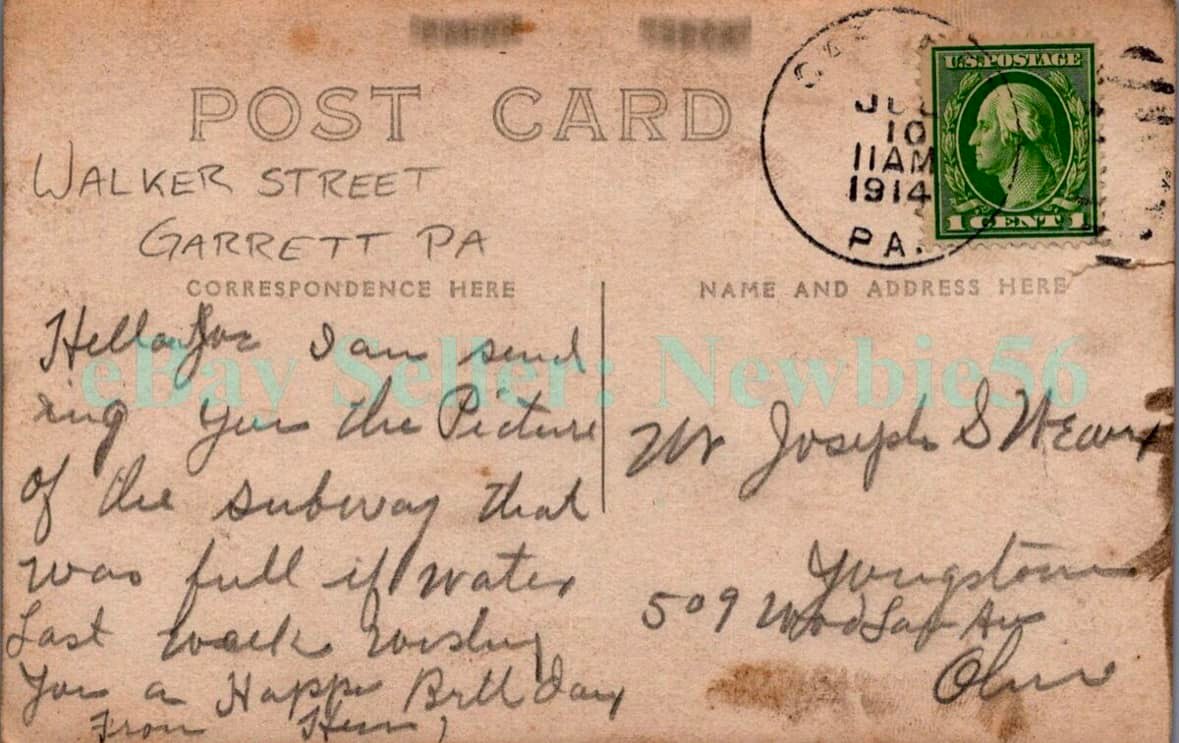 POST CARD
JUL
10
11AM
1914
PA.
U.S.POSTAGE
1 CENT 1
WALKER STREET
GARRETT PA
CORRESPONDENCE HERE
NAME AND ADDRESS HERE
eBay Seller: Newbie56
Hello Joe I am send
ing you the Picture
of the subway that
was full if water
Last week wishing
You a Happy Birth Day
From
Mr Joseph S Weaver
Youngstown
509 Av
Ohio